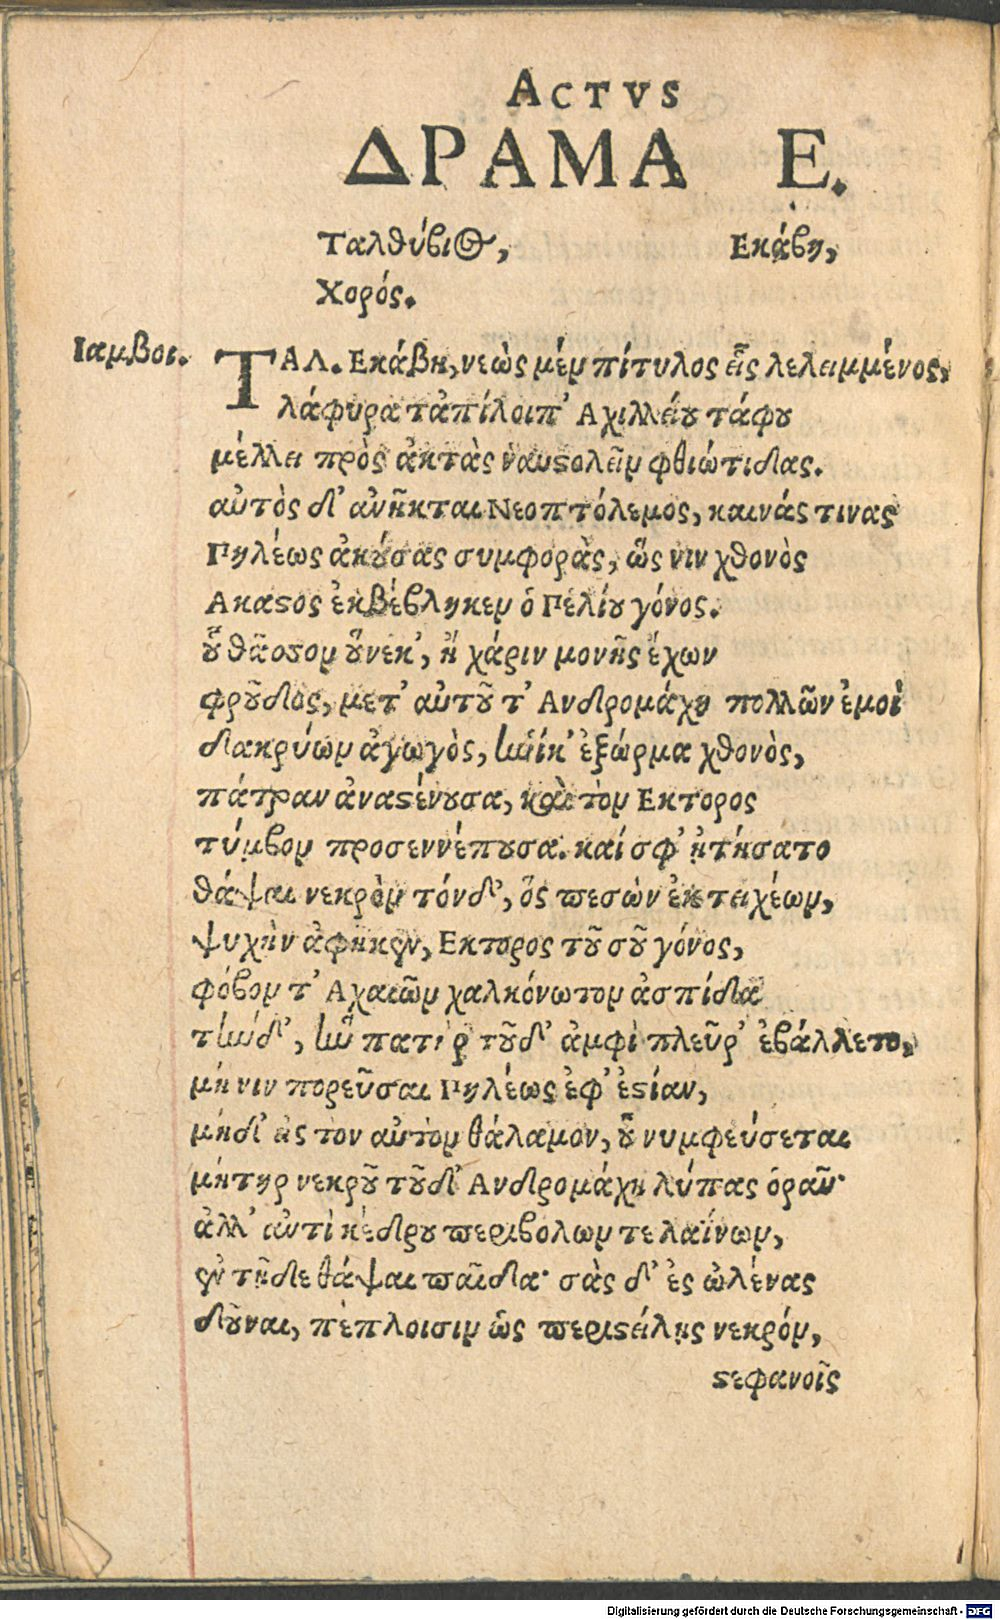 ACTVS
ΔΡΑΜΑ Ε.
Ταλθύβιος, Εκάβη,
Χορός.
Ιαμβοι. ΤΑΛ. Εκάβη, νεὼς μὲν πίτυλος εἷς λελειμμένος,
λάφυρα τἀπίλοιπ’ Αχιλλείου τάφου
μέλλει πρὸς ἀκτὰς ναυστολεῖν φθιώτιδας.
αὐτὸς δ’ ἀνῆκται Νεοπτόλεμος, καινάς τινας
Πηλέως ἀκούσας συμφορὰς, ὥς νιν χθονὸς
Ακαστος ἐκβέβληκεν ὁ Πελίου γόνος.
οὗ θᾶσσον οὕνεκ’, ἢ χάριν μονῆς ἔχων
φροῦδος, μετ’ αὐτοῦ τ’ Ανδρομάχη πολλῶν ἐμοὶ
δακρύων ἀγωγὸς, ἡνίκ’ ἐξώρμα χθονὸς,
πάτραν ἀναστένουσα, καὶ τὸν Εκτορος
τύμβον προσεννέπουσα. καί σφ’ ᾐτήσατο
θάψαι νεκρὸν τόνδ’, ὃς πεσὼν ἐκ τειχέων,
ψυχὴν ἀφῆκεν, Εκτορος τοῦ σοῦ γόνος,
φόβον τ’ Αχαιῶν χαλκόνωτον ἀσπίδα
τήνδ’, ἣν πατὴρ τοῦδ’ ἀμφὶ πλεῦρ’ ἐβάλλετο,
μή νιν πορεῦσαι Πηλέως ἐφ’ ἑστίαν,
μήδ’ ἐς τον αὐτὸν θάλαμον, οὗ νυμφεύσεται
μήτηρ νεκροῦ τοῦδ’ Ανδρομάχη λύπας ὁρᾶν·
ἀλλ’ ἀντὶ κέδρου περιβολων τε λαΐνων,
ἐν τῇδε θάψαι παῖδα· σὰς δ’ ἐς ὠλένας
δοῦναι, πέπλοισιν ὡς περιστείλῃς νεκρόν,
στεφανοῖς
Digitalisierung gefördert durch die Deutsche Forschungsgemeinschaft - DFG